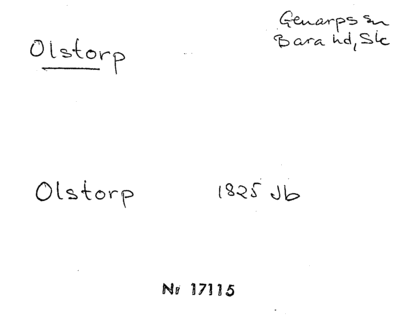 Genarps sn
Bara hd, Sk
Olstorp
Olstorp 1825 Jb
Nr 17115